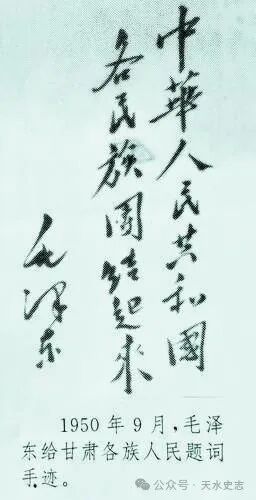 中華人民共和國
各民族團結起來
毛澤东
1950年9月,毛泽
东给甘肃各族人民题词
手迹。
公众号·天水史志